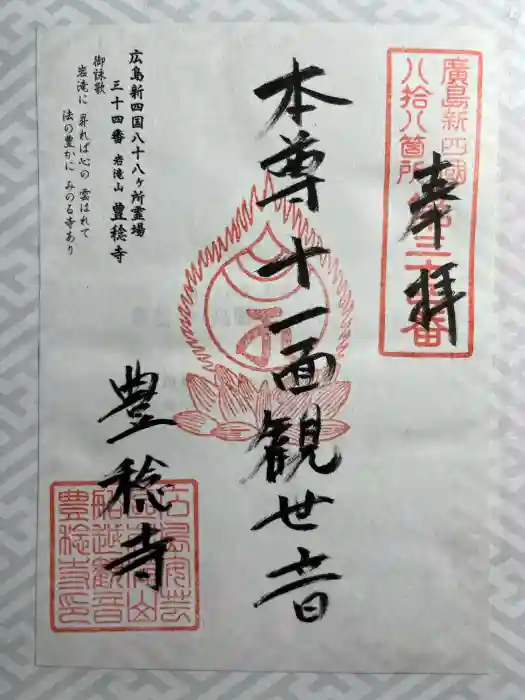 廣島新四國
八拾八箇所
第三十四番
奉拝
本尊十一面観世音
豊稔寺
広島新四国八十八ヶ所霊場
三十四番 岩滝山 豊稔寺
御詠歌
岩滝に 昇れば心の 雲はれて
法の豊かに みのる寺あり
船越観音
豊稔寺印